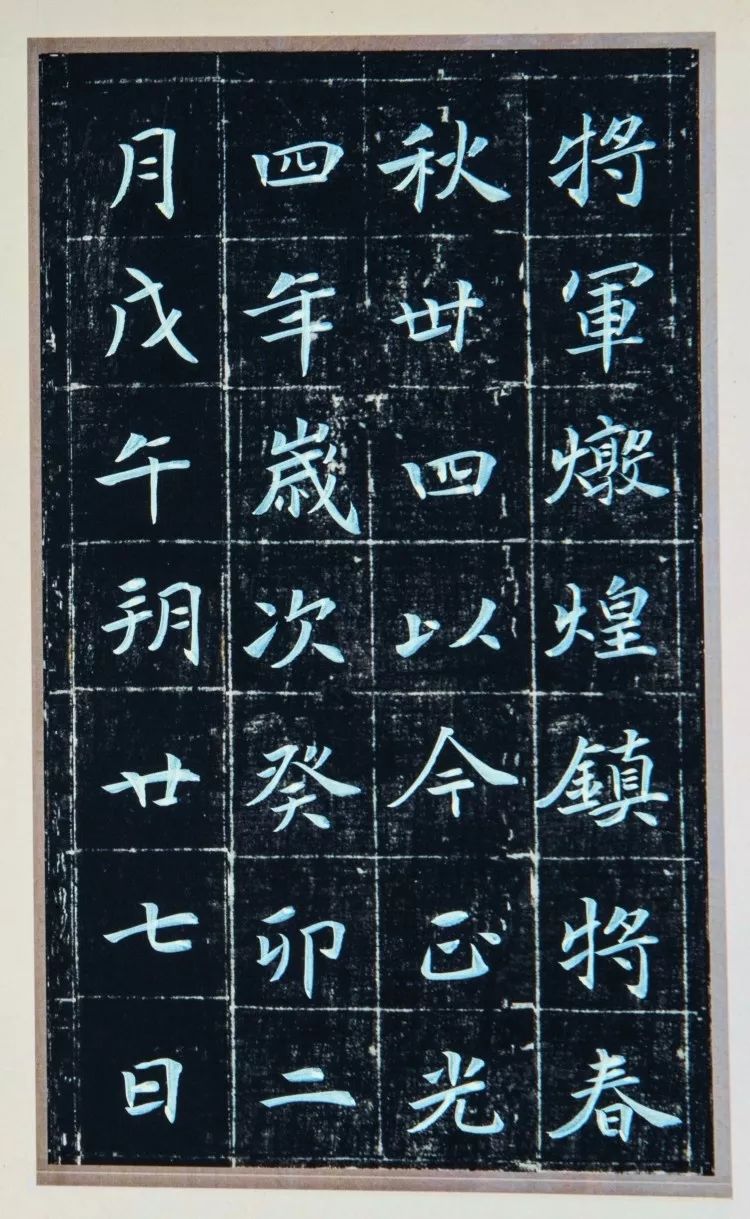 將軍燉煌鎮將春
秋卌四以今正光
四年歲次癸卯二
月戊午朔廿七日